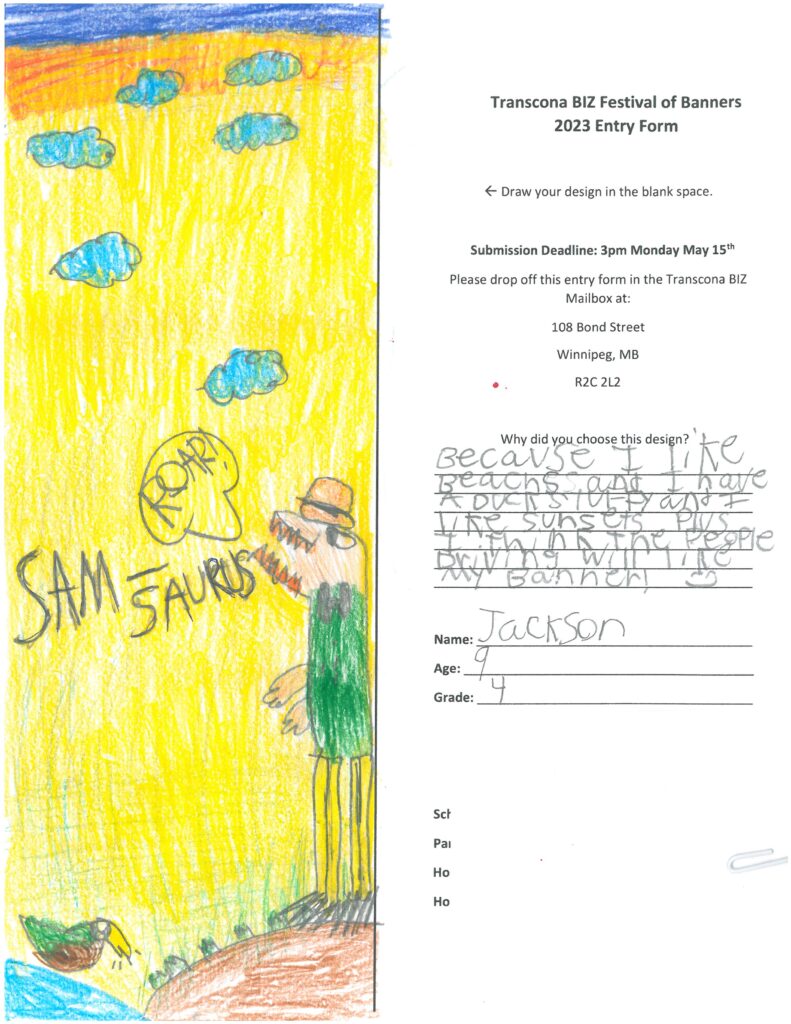 Transcona BIZ Festival of Banners
2023 Entry Form
← Draw your design in the blank space.
Submission Deadline: 3pm Monday May 15th
Please drop off this entry form in the Transcona BIZ
Mailbox at:
108 Bond Street
Winnipeg, MB
R2C 2L2
Why did you choose this design?
Because I like
Beachs and I have
A Duck and I
like sunsets Plus
I think the People
Driving will like
My Banner!
Name: Jackson
Age: 9
Grade: 4
Sch
Pa
Ho
Ho
ROAR!
SAM-
SAURUS